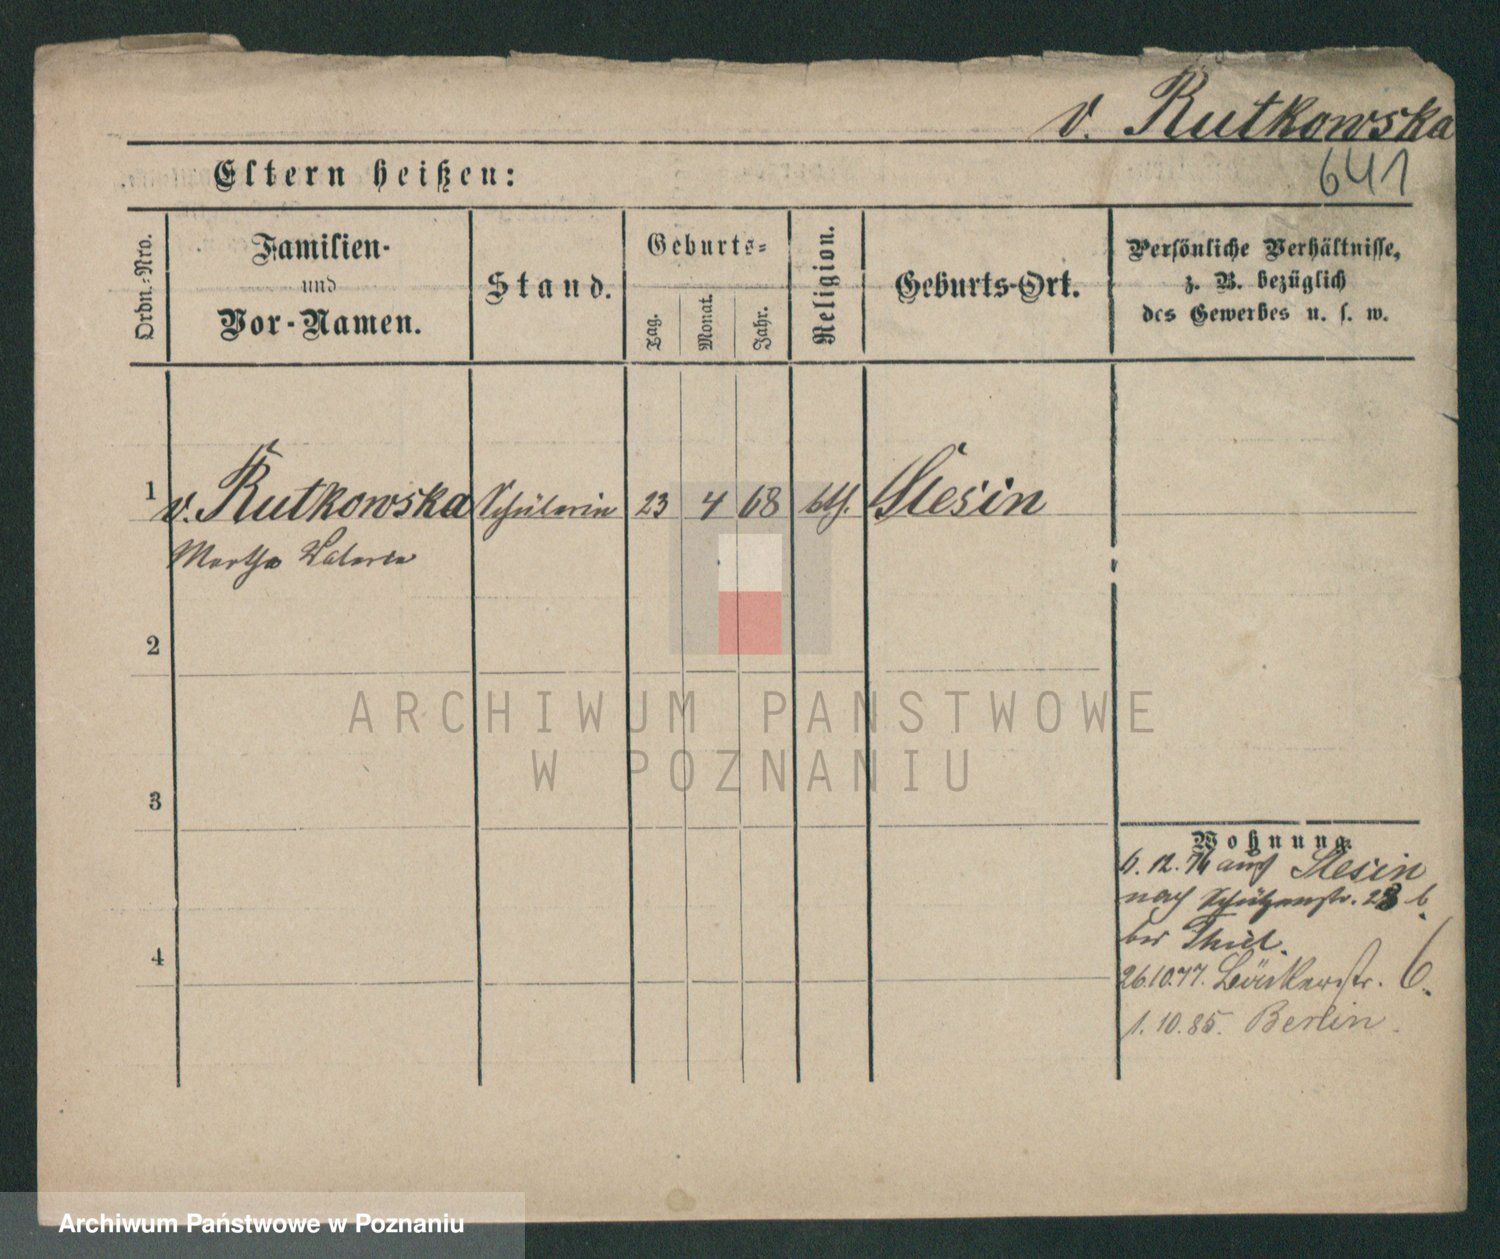 v. Rutkowska
641
Eltern heißen:
Ordn.-Nro.
Familien-
und
Vor-Namen.
Stand.
Geburts-
Tag.
Monat.
Jahr.
Religion.
Geburts-Ort.
Persönliche Verhältnisse,
z. B. bezüglich
des Gewerbes u. s. w.
1 v. Rutkowska Schülerin 23 4 68 kth. Slesin
Martha Valeria
2
3
4
Wohnung.
6.12.76 aus Slesin
nach Schützenstr. 28 b.
bei Thiel.
26.10.77. Bäckerstr. 6.
1.10.85. Berlin.
ARCHIWUM PAŃSTWOWE
W POZNANIU
Archiwum Państwowe w Poznaniu